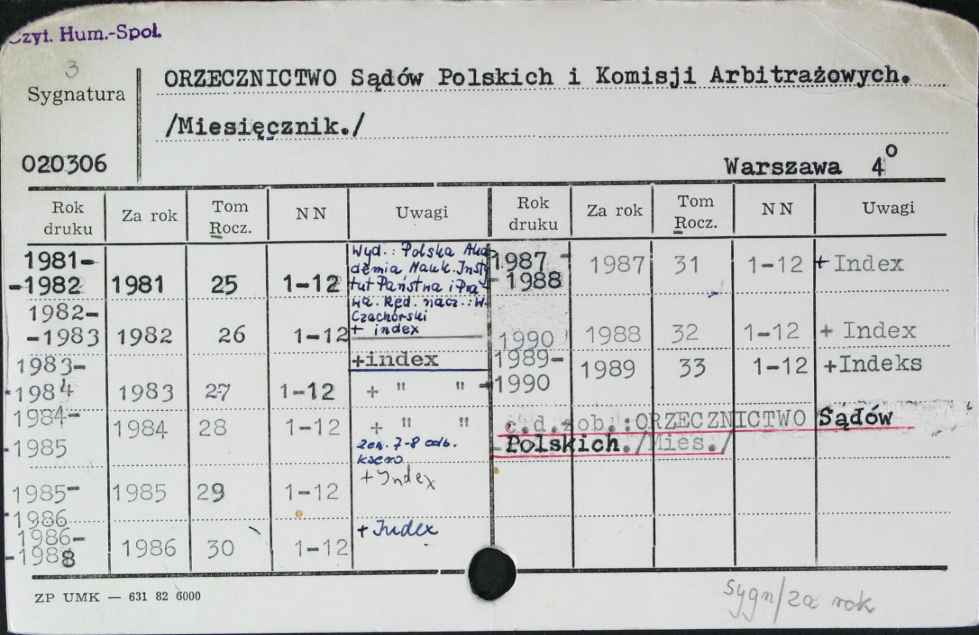 Czyt. Hum.-Społ.
3
Sygnatura
ORZECZNICTWO Sądów Polskich i Komisji Arbitrażowych.
/Miesięcznik./
020306
Warszawa 4o
Rok druku Za rok Tom Rocz. NN Uwagi
1981-1982 1981 25 1-12 Wyd.: Polska Aka
demia Nauk. Insty
tut Państwa i Pra
wa. Red. nacz.: W.
Czachórski
+ index
1982-1983 1982 26 1-12 +index
1983-1984 1983 27 1-12 + " "
1984-1985 1984 28 1-12 + " "
zesz. 7-8 odb.
ksero
1985-1986 1985 29 1-12 +Index
1986-1988 1986 30 1-12 +Index
Rok druku Za rok Tom Rocz. NN Uwagi
1987-1988 1987 31 1-12 +Index
1990 1988 32 1-12 + Index
1989-1990 1989 33 1-12 +Indeks
c.d.zob.:ORZECZNICTWO Sądów
Polskich./Mies./
ZP UMK — 631 82 6000
sygn/za rok